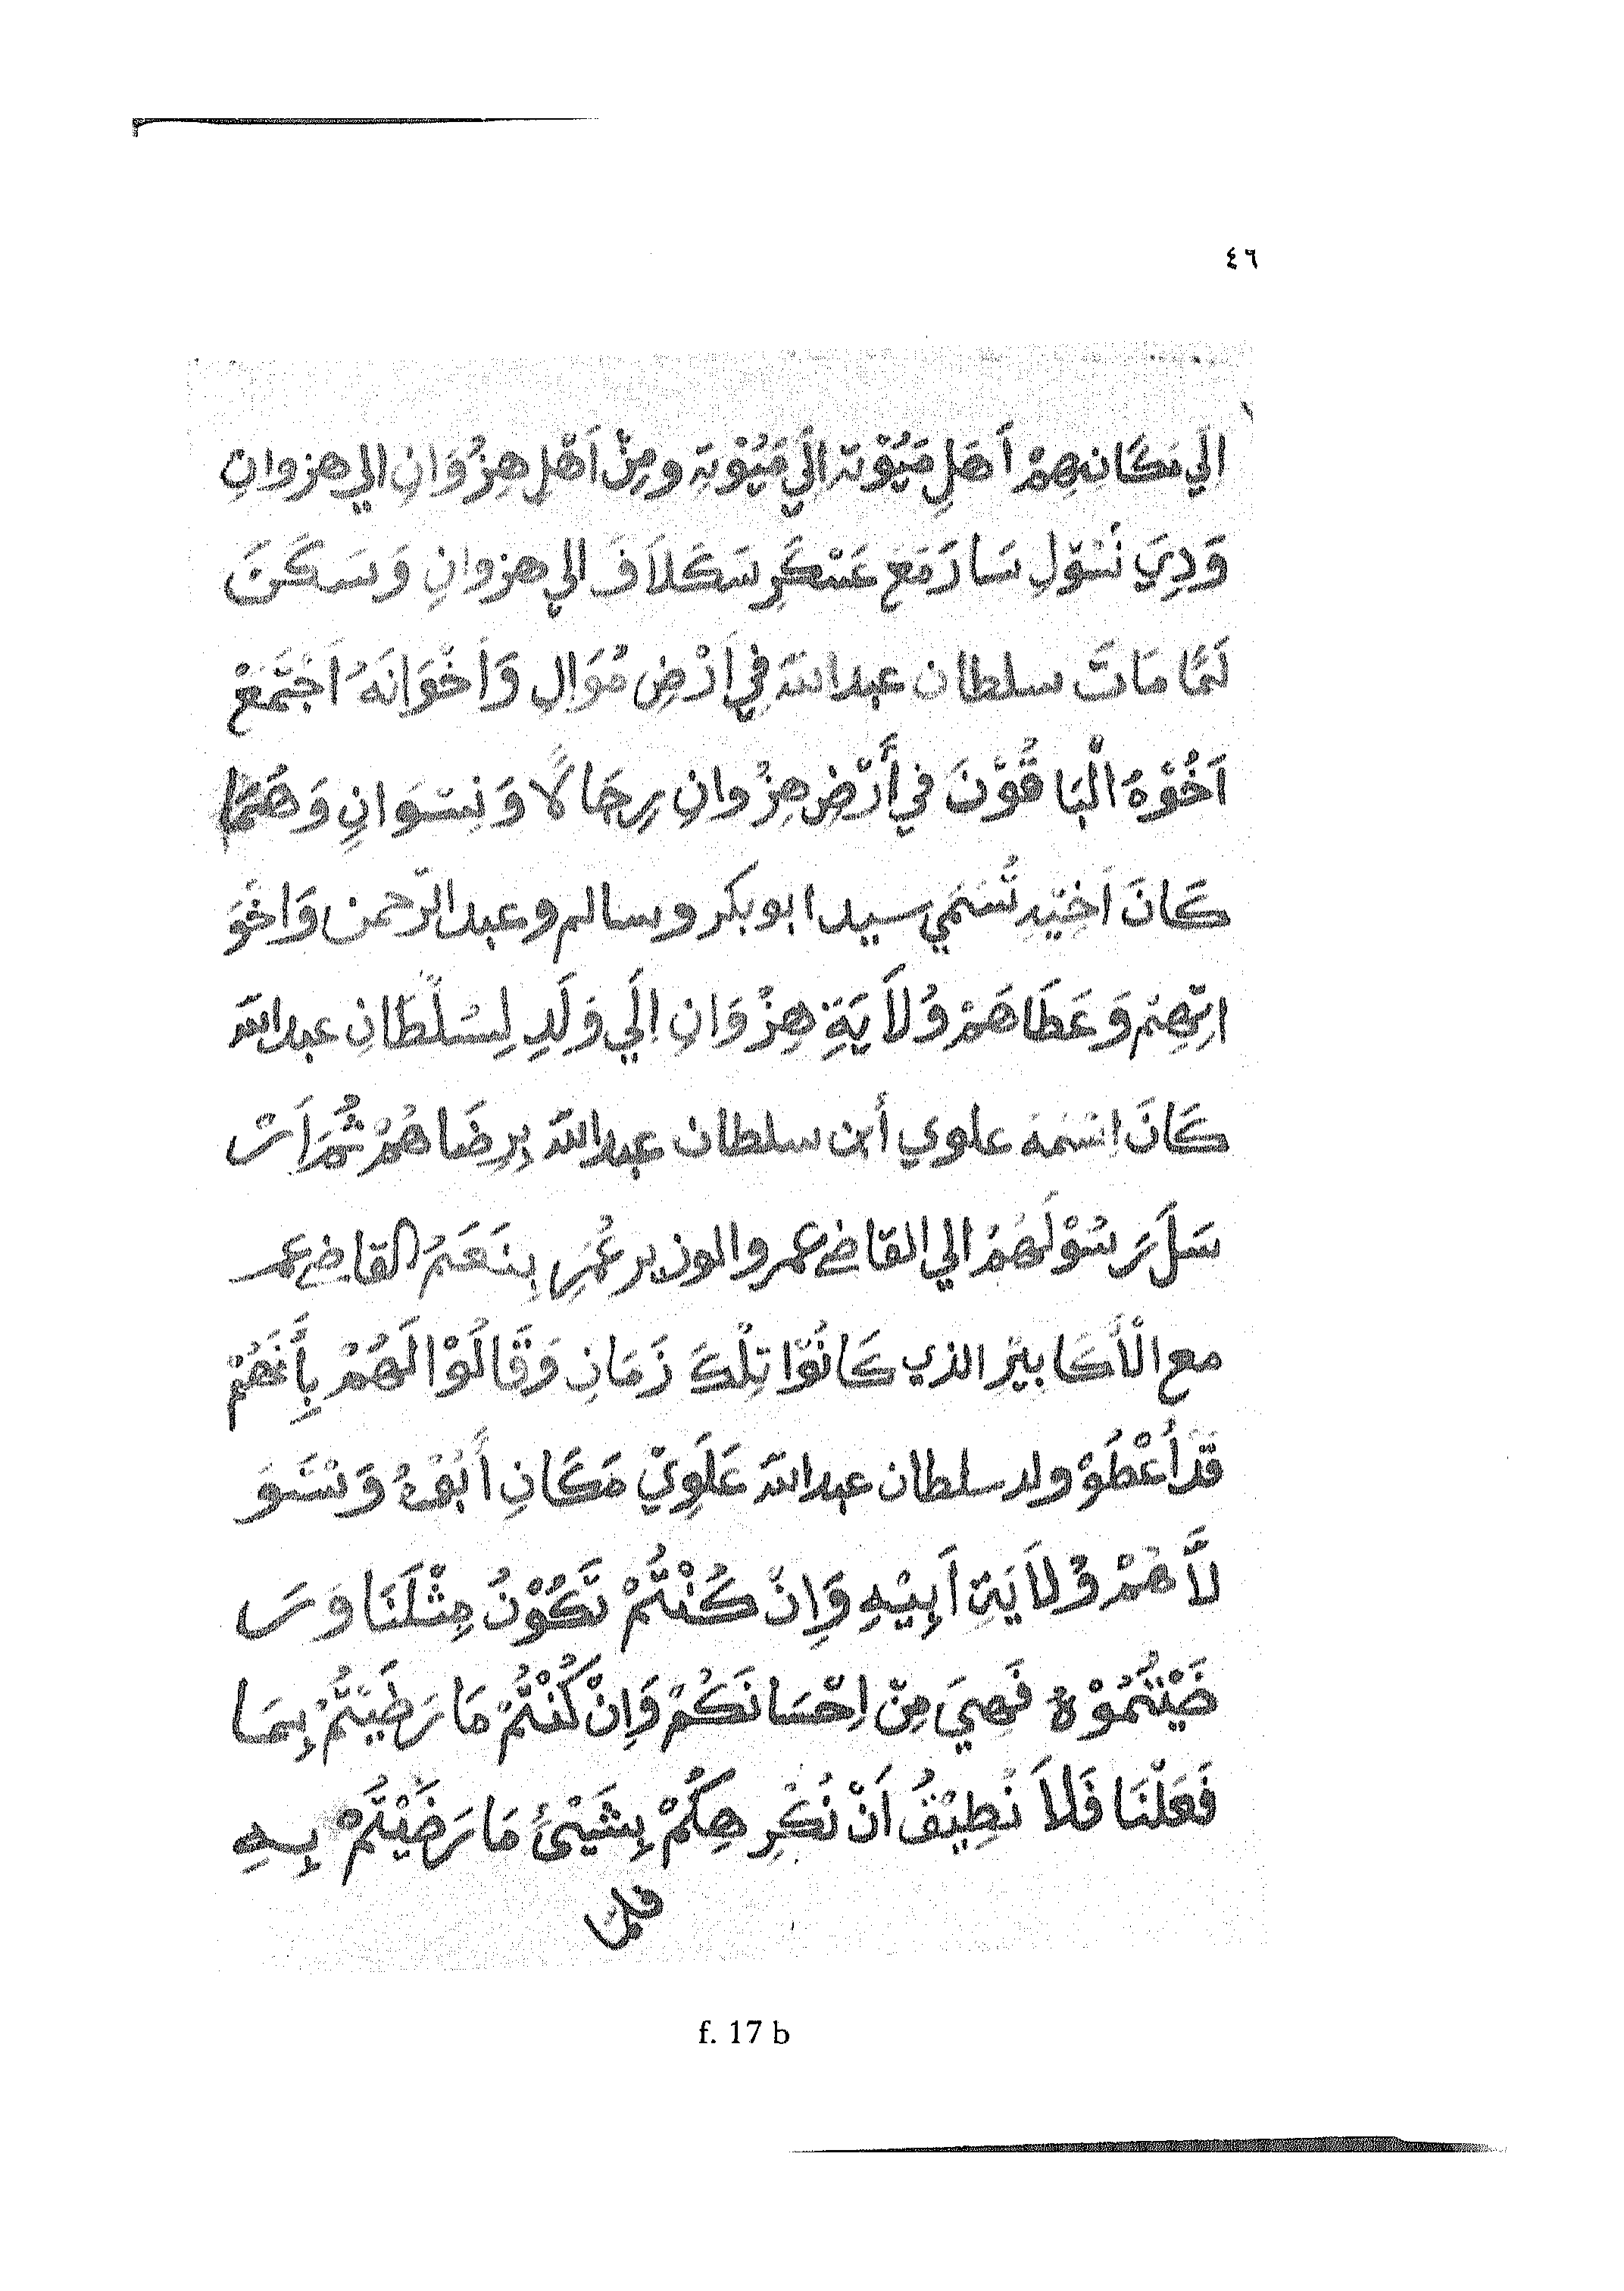 ٤٦
الَي مَكَانِهِمْ أَهَلِ مَيُوْتَة اِلَي مَيُوْتَةِ ومِنْ أَهْلِ هِزُوَانِ الي هزوانِ
وَدِيَ نَسُوْلِ سَارَ مَعَ عَسْكَرِ سَكَلاَفَ الي هزوانِ وَسَكَنَ
لَمَّا مَاتَ سلطان عبدالله فِي اَرْضِ مُوَالِ وَاَخْوَانَهُ اَجْتَمَعْ
اَخُوْهُ الْبَاقُوْنَ فِي أَرْضِ هِزُوانِ رِجَالًا وَنِسْوَانِ وَهُمَا
كَانَ اَخِيْدِ تُسَمَي سيد ابو بكر وسالم وعبد الرّحمن وَاخْوَ
اتِهِمْ وَعَطَاهَمْ وُلاَيَةِ هِزُوَانِ اِلَي وَلَدِ لِسُلْطَانِ عبدالله
كَانَ اسْمَهُ علوي أبن سلطان عبدالله بِرِضَاهُمْ ثُمَّ اَرْ
سَلَ رَسُوْلَهُمْ الي القاضي عمر والوزير عُمَرِ بِنَعَمُ القاضي عمر
مع الْأَكَابِيْرِ الذي كَانُوْا تِلْكَ زَمَانِ وَقَالُوْا لَهُمْ بِأَنَهُمْ
قَدْ أَعْطَوْ ولد سلطان عبدالله عَلَوِيْ مَكَانِ أَبُوْهُ وَسَوَ
لَّاهُمْ وُلاَيَةِ اَبِيْهِ وَاِنْ كُنْتُمْ تَكُوْنُ مِثْلَنَا وَرَ
ضَيْتُمُوْهُ فَهِيَ مِنْ اِحْسَانَكُمْ وَاِنْ كُنْتُمْ مَا رَضَيْتُمْ بِمَا
فَعَلْنَا فَلاَ نُطِيْقُ اَنْ نُكْرِهِكُمْ بِشَيْئٍ مَا رَضَيْتُمْ بِهِ
فلمّا
f. 17 b